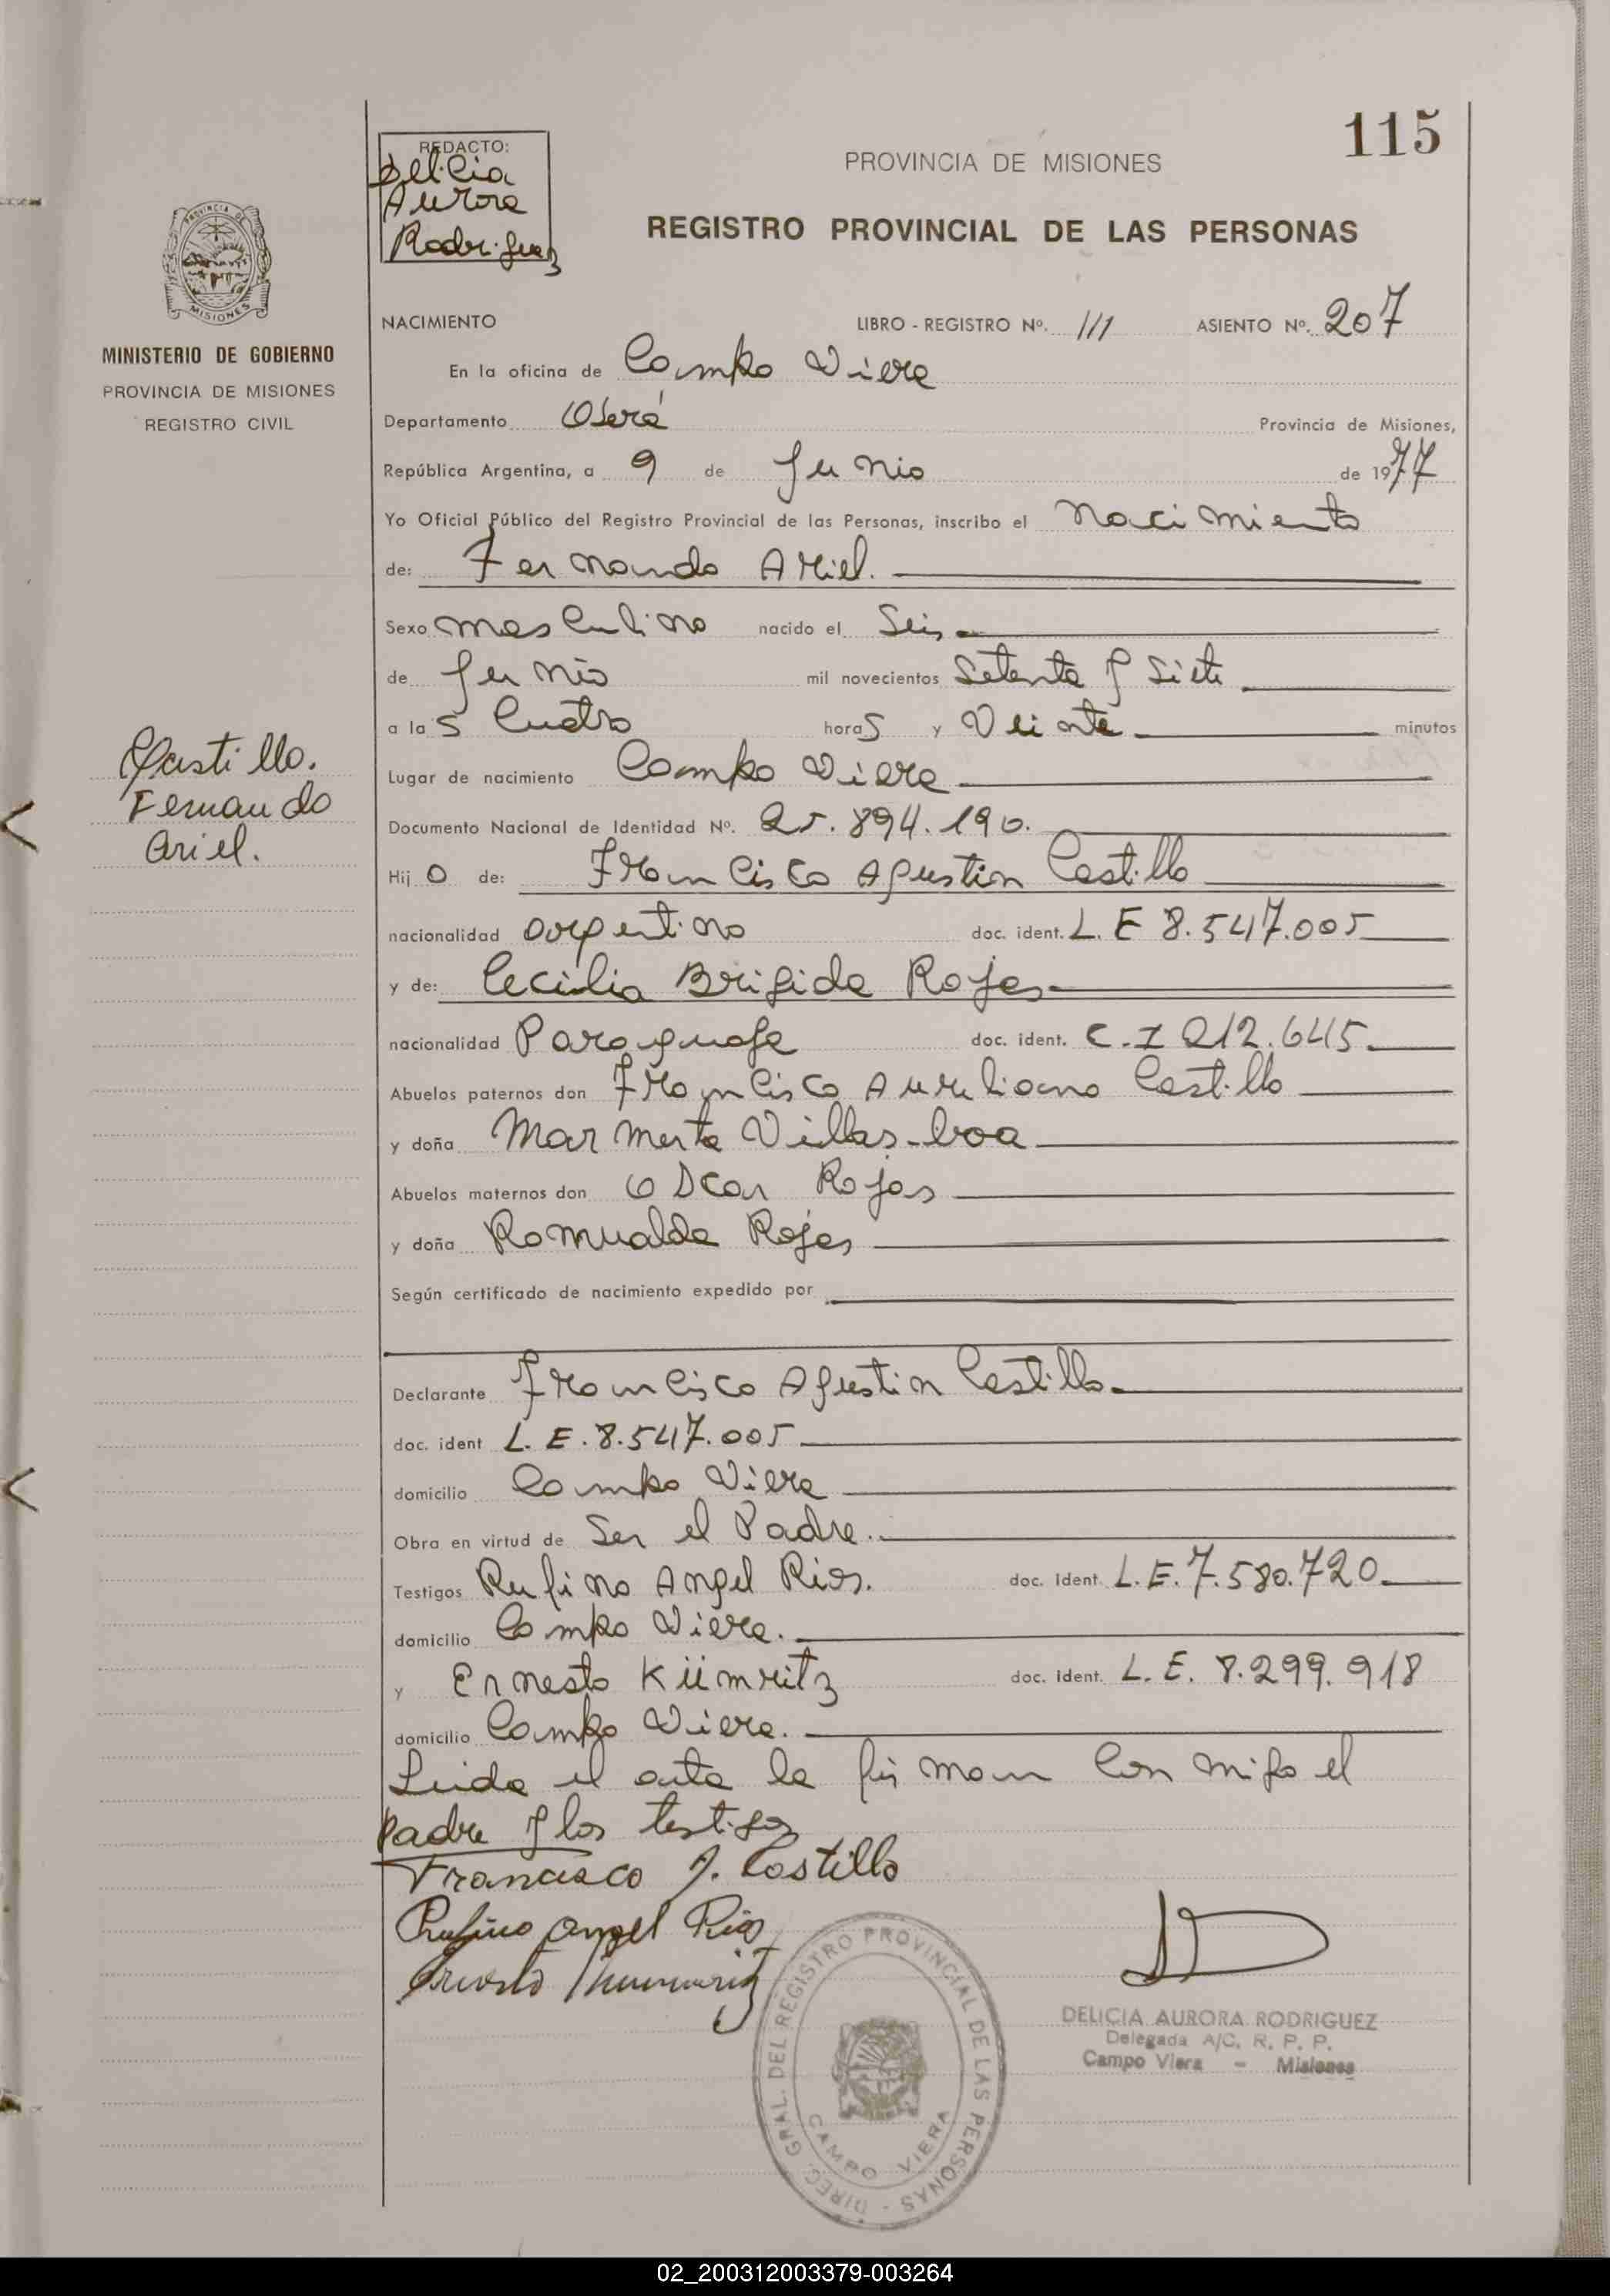 115
REDACTO:
Delicia
Aurora
Rodriguez
PROVINCIA DE MISIONES
REGISTRO PROVINCIAL DE LAS PERSONAS
PROVINCIA DE
MISIONES
MINISTERIO DE GOBIERNO
PROVINCIA DE MISIONES
REGISTRO CIVIL
NACIMIENTO LIBRO - REGISTRO Nº. III ASIENTO Nº. 207
En la oficina de Campo Viera
Departamento Oberá Provincia de Misiones,
República Argentina, a 9 de Junio de 1977
Yo Oficial Público del Registro Provincial de las Personas, inscribo el Nacimiento
de: Fernando Ariel.
Sexo masculino nacido el Seis
de Junio mil novecientos Setenta y Siete
a las Cuatro horas y Veinte minutos
Castillo.
Fernando
Ariel.
Lugar de nacimiento Campo Viera
Documento Nacional de Identidad Nº. 25.894.190.
Hijo de: Francisco Agustin Castillo
nacionalidad argentino doc. ident. L. E 8.547.005
y de: Cecilia Brigida Rojas
nacionalidad Paraguaya doc. ident. C. I 212.645.
Abuelos paternos don Francisco Aureliano Castillo
y doña Mar Merta Villas-boa
Abuelos maternos don Oscar Rojas
y doña Romualda Rojas
Según certificado de nacimiento expedido por
Declarante Francisco Agustin Castillo
doc. ident L. E. 8.547.005
domicilio Campo Viera
Obra en virtud de Ser el Padre.
Testigos Rufino Angel Rios. doc. ident. L. E. 7.580.720
domicilio Campo Viera.
y Ernesto Kümritz doc. ident. L. E. 8.299.918
domicilio Campo Viera.
Leida el acta la firman con migo el
padre y los testigos
Francisco A. Castillo
Rufino Angel Rios
DIREC. GRAL. DEL REGISTRO PROVINCIAL DE LAS PERSONAS -
CAMPO VIERA
DELICIA AURORA RODRIGUEZ
Delegada A/C. R. P. P.
Campo Viera - Misiones
02_200312003379-003264